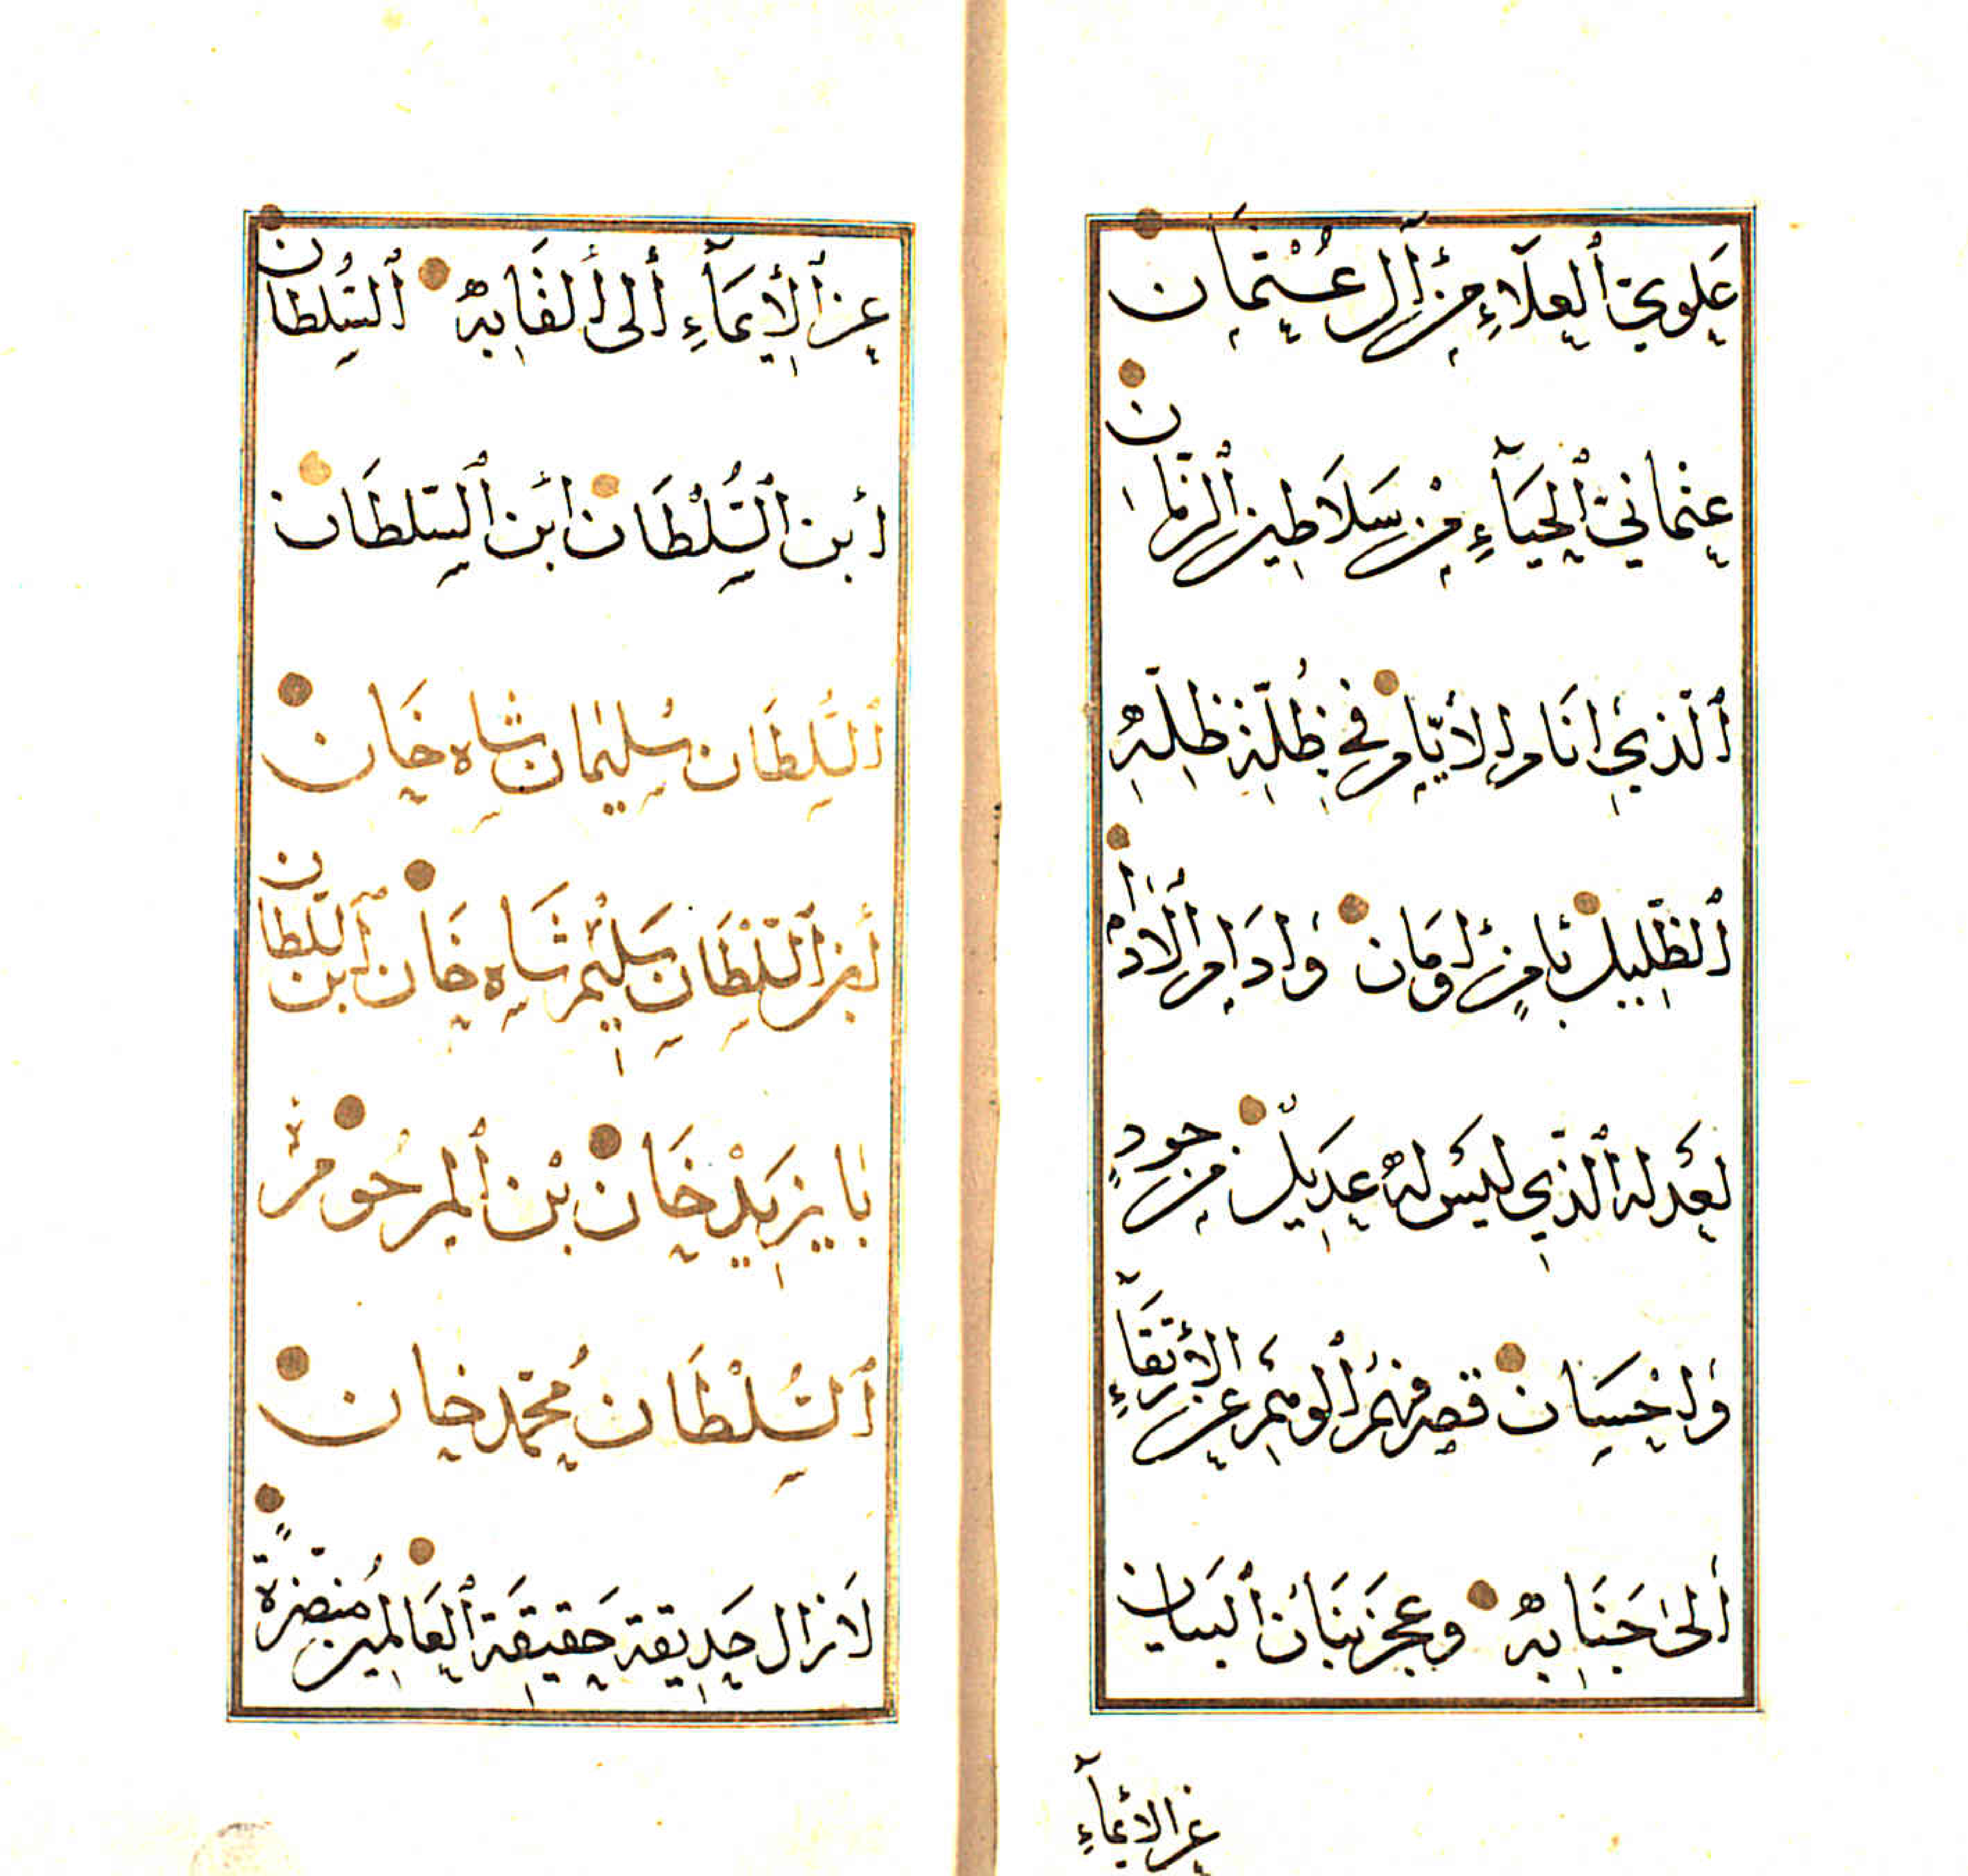 عَلويّ ٱلعلَاءِ مِنْ آلِ عُثمَان
عثمانيّ ٱلحيَآءِ مِنْ سَلَاطين ٱلزّمان
ٱلّذي انَام الأيّام في ظُلّة ظِلّهِ
ٱلظّليل بامنٍ وامَان وادَام الانَام
لعَدله ٱلذّي ليسَ لهُ عدِيلٌ من جودٍ
واحْسَان قصر فهمُ ٱلوهم عن الارتقَآءِ
ألى جَنَابهِ وعجز بنَان ٱلبيَان
عن الايمَآءِ
عن ٱلأيمَآءِ ألى ألقَابهِ ٱلسُّلطان
ابن ٱلسُّلْطَان ابن ٱلسّلطَان
ٱلسُّلطَان سُليمان شاه خَان
ابن ٱلسّلْطَان سَليم شَاه خَان ابن ٱلسّلطان
بايزيَدْ خَان بْن ٱلمرحُوم
ٱلسُّلْطَان مُحمّد خان
لَازال حَديقة حَقيقَة ٱلعَالمين مُنضّرةً